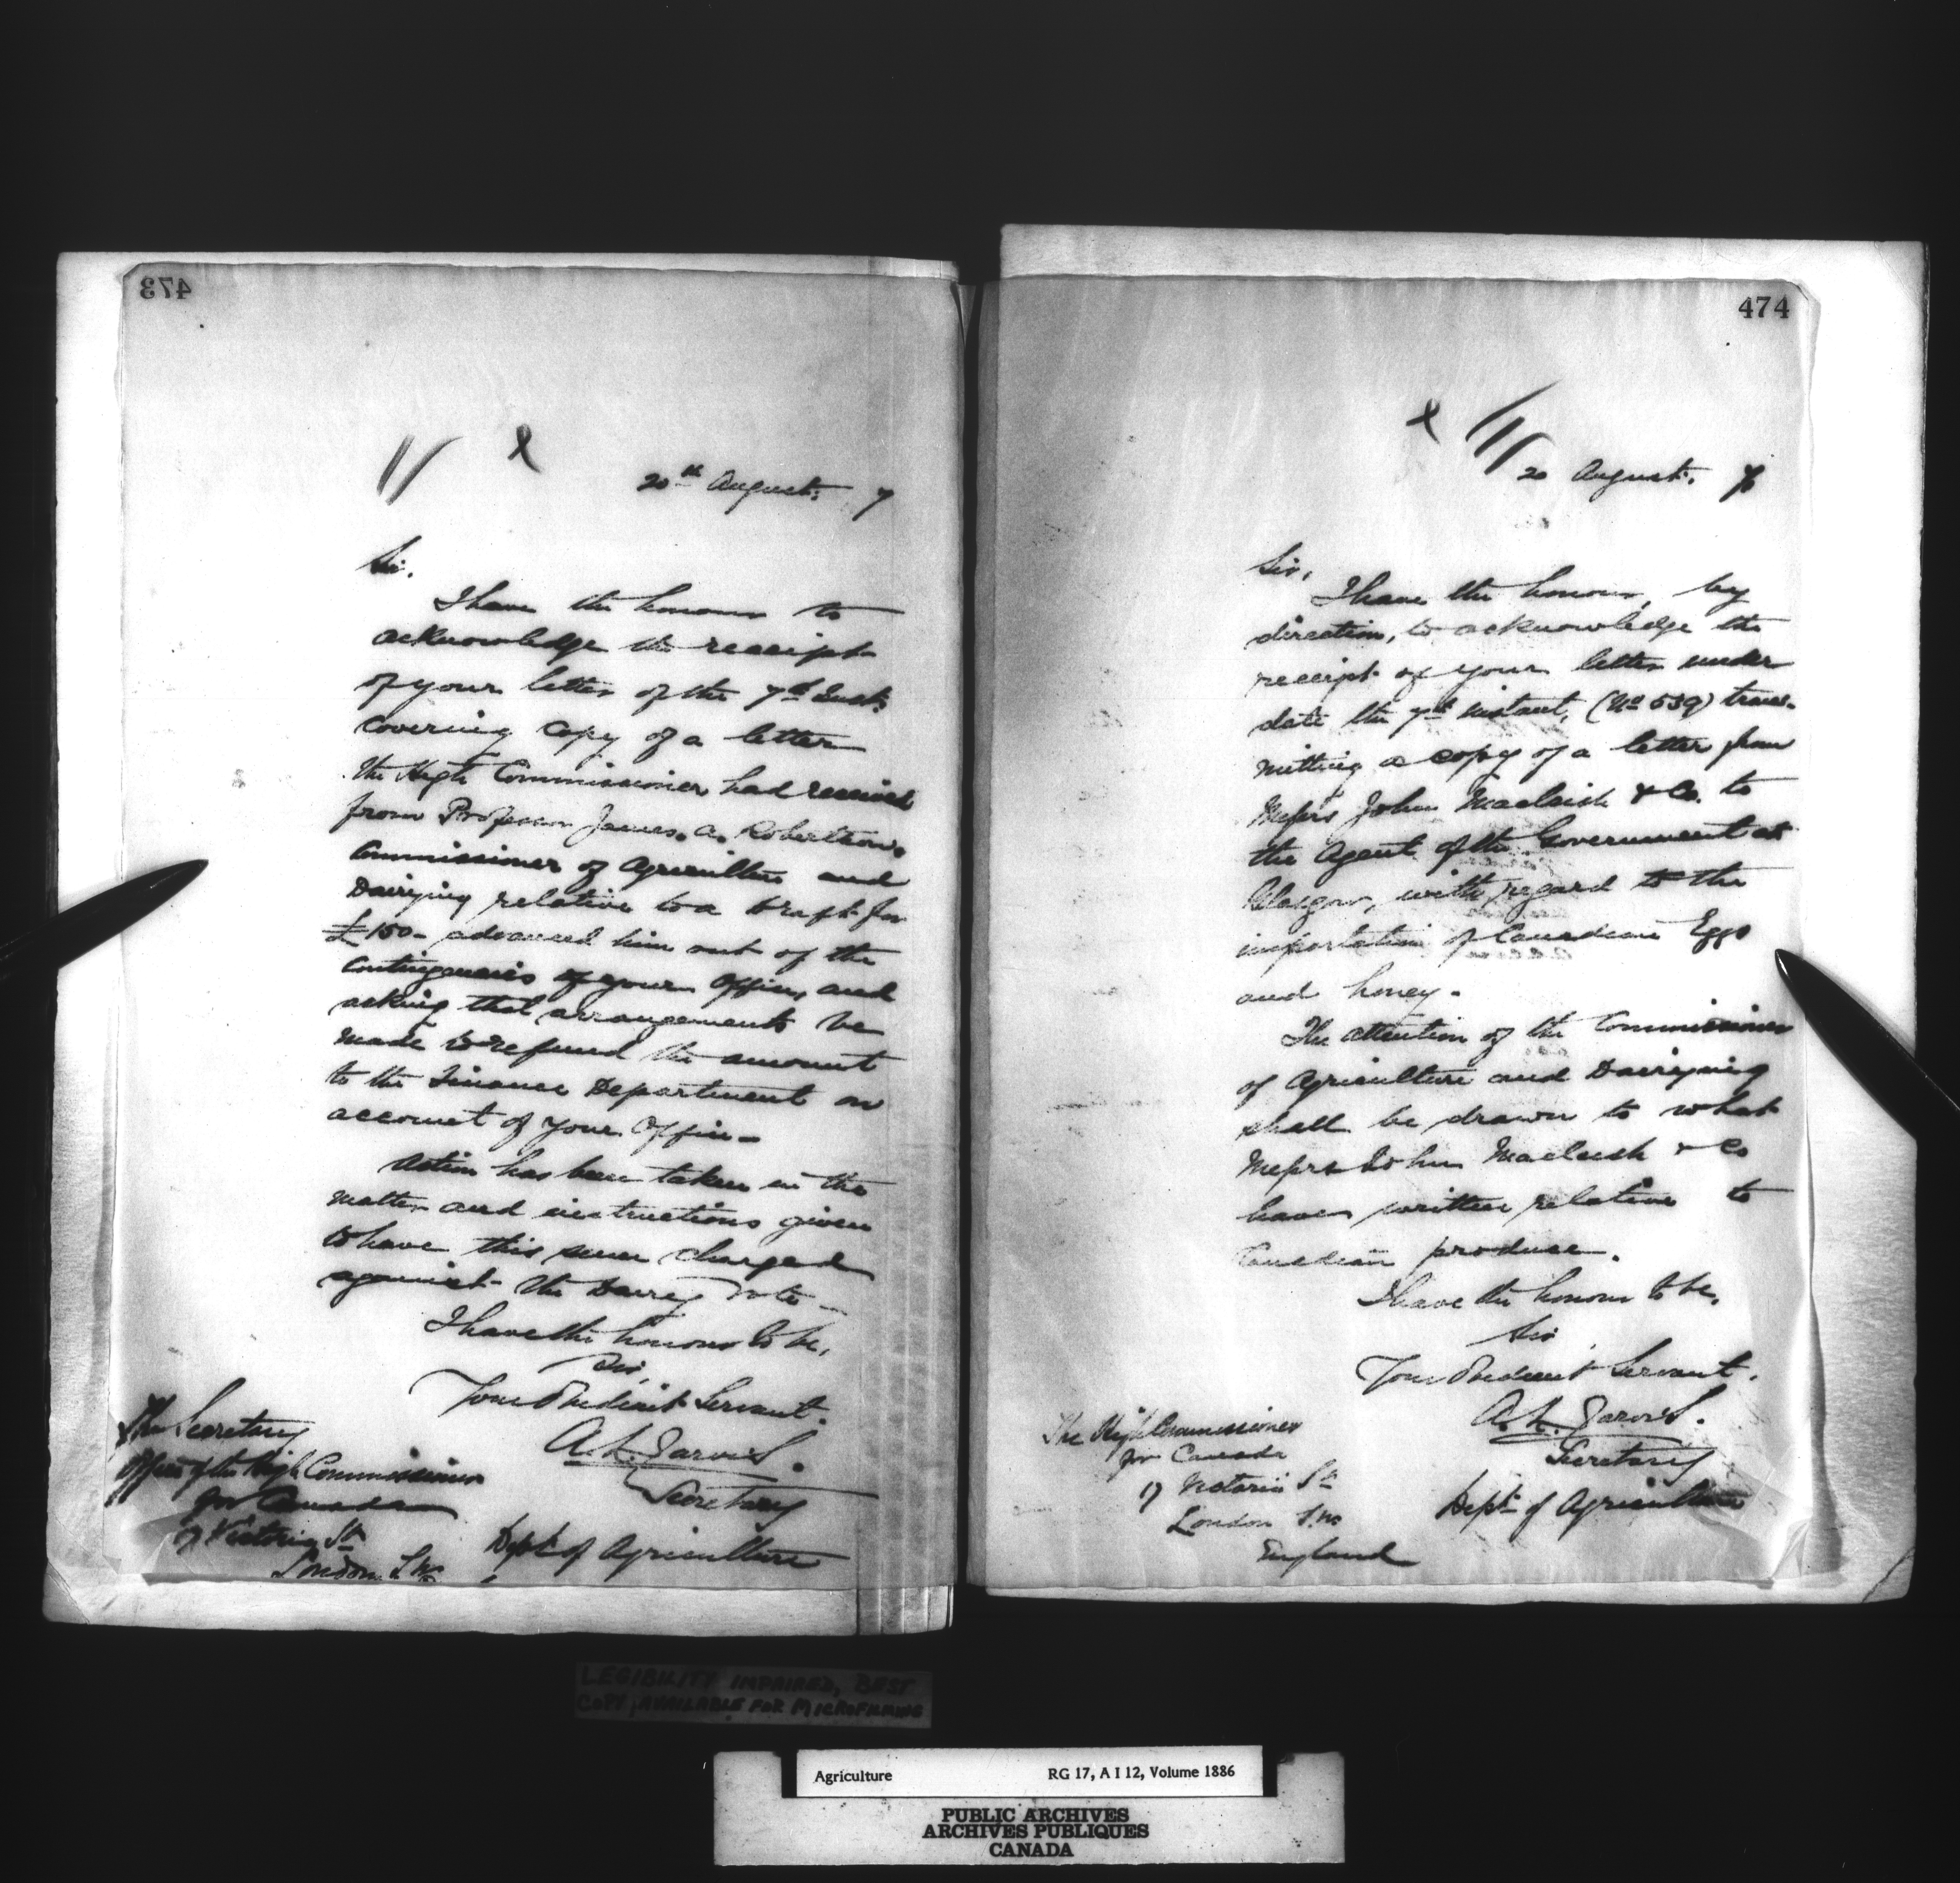 473
20th August. 7
Sir.
I have the honour to
acknowledge the receipt
of your letter of the 7th Inst.
covering copy of a letter
the High Commissioner had received
from Professor James. A. Robertson.
Commissioner of Agriculture and
Dairying relative to a draft for
£150- advanced him out of the
Contingencies of your Office, and
asking that arrangements be
made to refund the amount
to the Finance Department on
account of your Office-
Action has been taken in the
matter and instructions given
to have this sum charged
against the Dairy Vote-
I have the honour to be,
Sir,
Your Obedient Servant.
A. L. Jarvis.
Secretary
Dept. of Agriculture
The Secretary
Office of the High Commissioner
for Canada
17 Victoria St
London S.W.
474
20 August. 7
Sir,
I have the honour, by
direction, to acknowledge the
receipt of your letter under
date the 7th instant, (No 539) trans-
mitting a copy of a letter from
Messrs John Macleish & Co. to
the Agent of the Government at
Glasgow, with regard to the
importation of Canadian Eggs
and honey.
The attention of the Commissioner
of Agriculture and Dairying
shall be drawn to what
Messrs John Macleish & Co
have written relative to
Canadian produce.
I have the honour to be,
Sir
Your Obedient Servant.
A. L. Jarvis.
Secretary
Dept. of Agriculture
The High Commissioner
for Canada
17 Victoria St
London S.W.
England
LEGIBILITY IMPAIRED, BEST
COPY AVAILABLE FOR MICROFILMING
Agriculture RG 17, A I 12, Volume 1886
PUBLIC ARCHIVES
ARCHIVES PUBLIQUES
CANADA